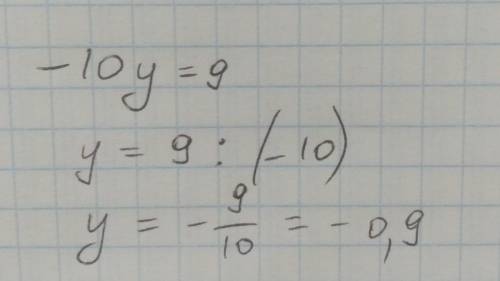 -10y = 9
y = 9 : (-10)
y = -9/10 = -0,9